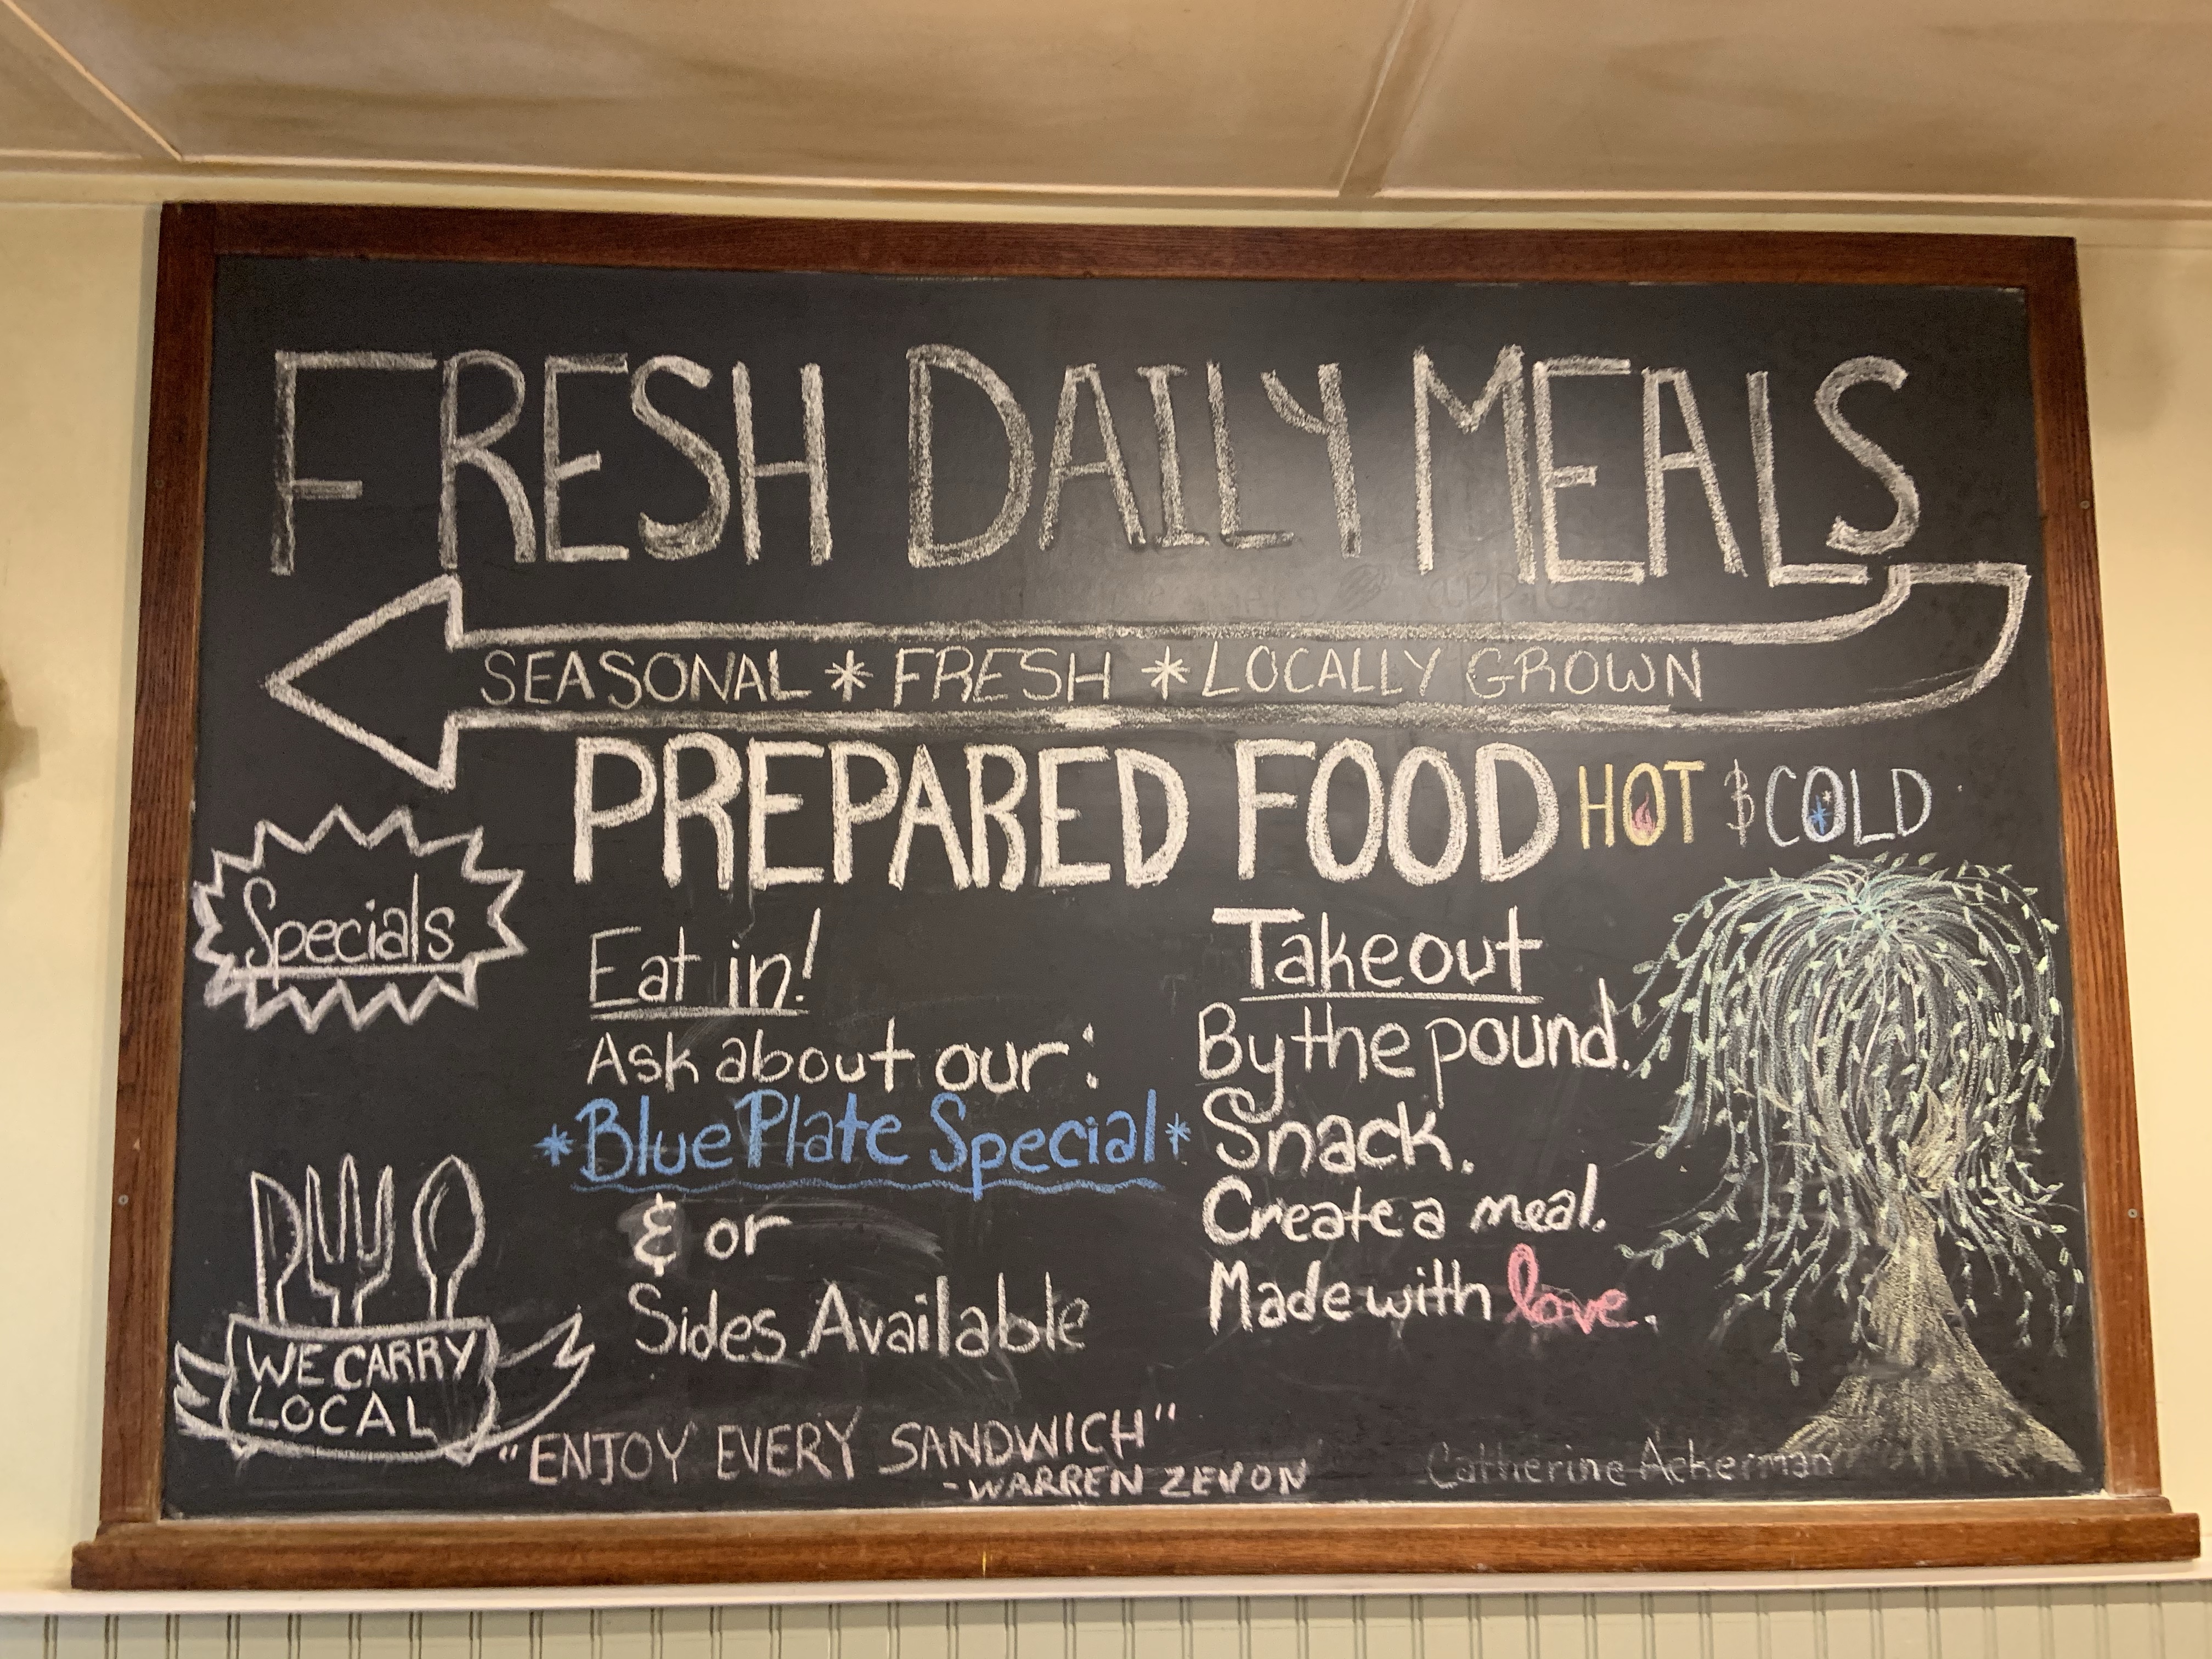 FRESH DAILY MEALS
SEASONAL * FRESH * LOCALLY GROWN
PREPARED FOOD HOT & COLD
Specials
Eat in!
Ask about our:
*Blue Plate Special*
& or
Sides Available
Takeout
By the pound.
Snack.
Create a meal.
Made with love.
WE CARRY
LOCAL
"ENJOY EVERY SANDWICH"
-WARREN ZEVON
Catherine Ackerman